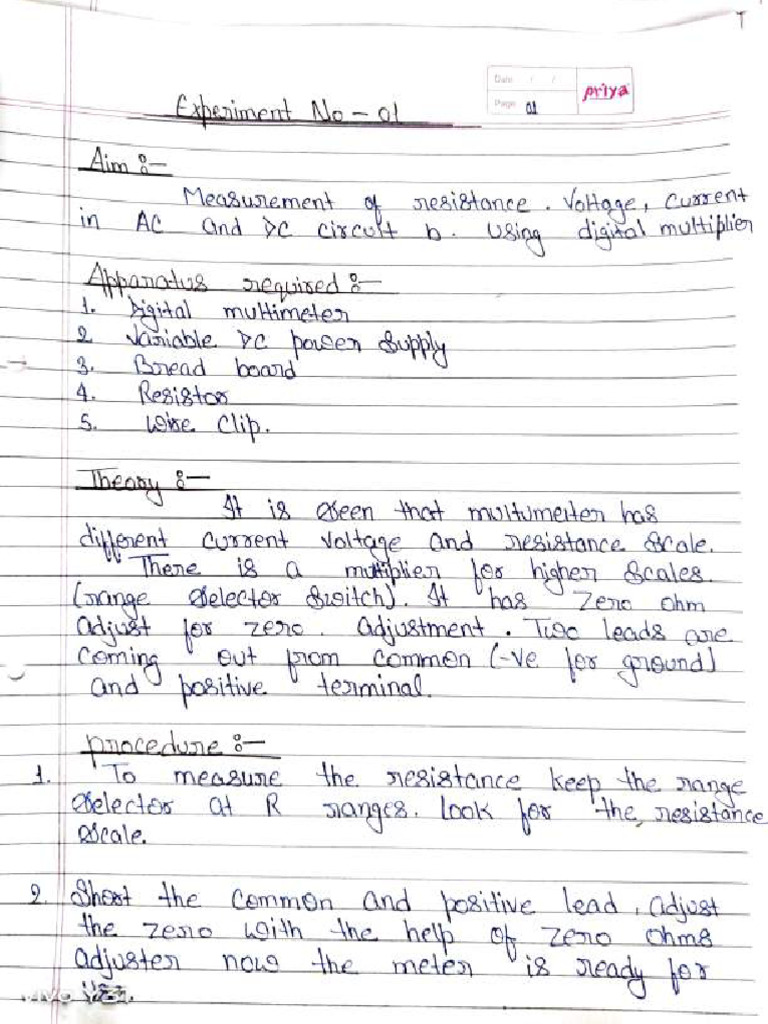 T
Date / /
Page 01
priya
Experiment No - 01
Aim :-
Measurement of resistance . Voltage, current
in AC and DC circuit b. Using digital multiplier
Apparatus required :-
1. Digital multimeter
2 Variable DC power supply
3. Bread board
4. Resistor
5. Wire Clip.
Theory :-
It is seen that multumeiter has
different current voltage and resistance scale.
There is a multiplier for higher scales
(range selector switch). It has zero ohm
adjust for zero. adjustment. Two leads are
coming out from common (-ve for ground)
and positive terminal.
procedure :-
1. To measure the resistance keep the range
selector at R ranges. look for the, resistance
scale.
2. Short the common and positive lead, adjust
the zero with the help of zero ohms
adjuster now the meter is ready for